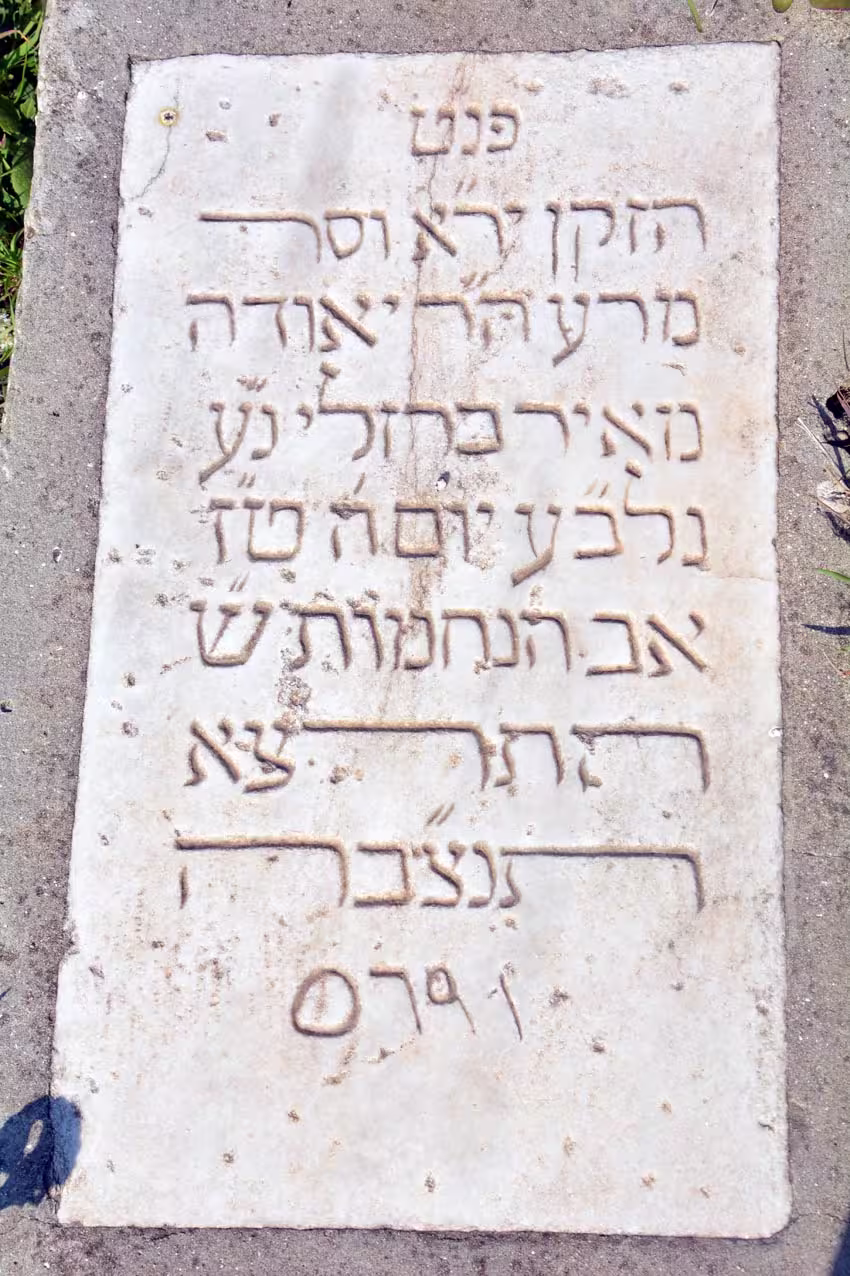 פנט
הזקן יר״א וסר
מרע ה״ר יאודה
מאיר ברזלי נ״ע
נלב״ע יום ה׳ ט״ז
אב הנחמות ש״
התרצא
תנצ״בה
١٩٦٥